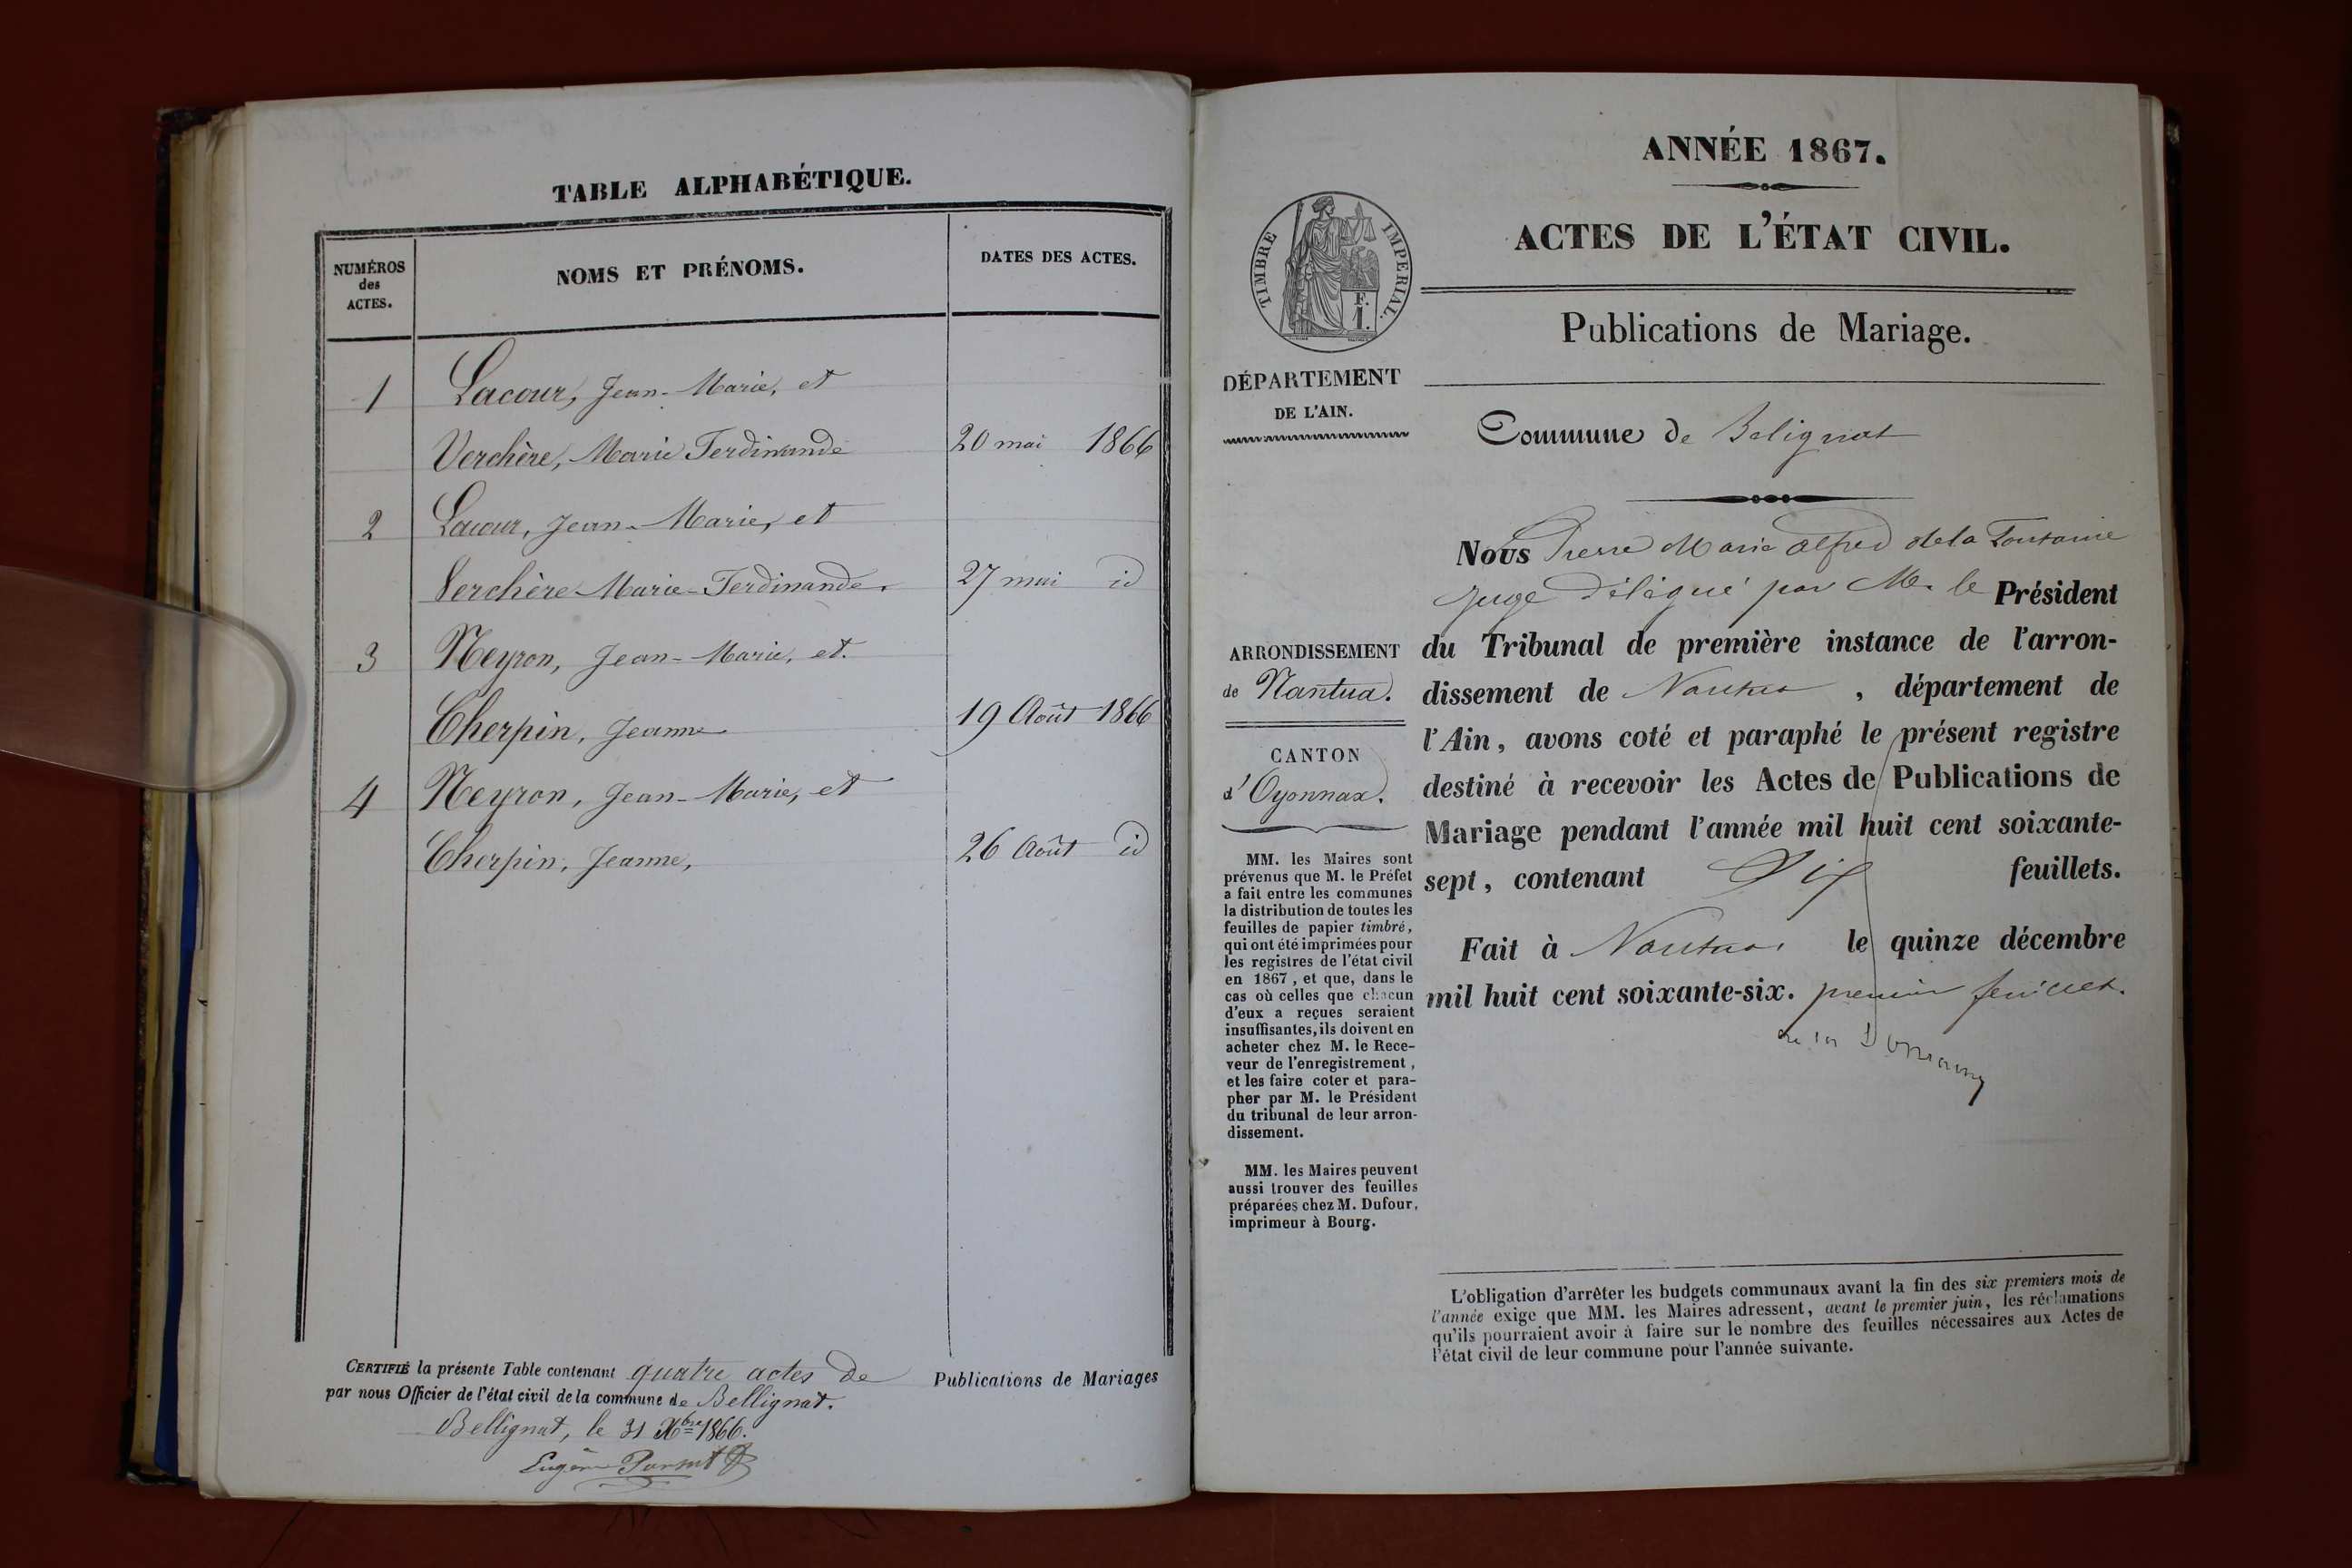 TABLE ALPHABÉTIQUE.
NUMÉROS
des
ACTES.
NOMS ET PRÉNOMS.
DATES DES ACTES.
1 Lacour, Jean-Marie, et
Verchère, Marie Ferdinande 20 mai 1866
2 Lacour, Jean-Marie, et
Verchère Marie-Ferdinande. 27 mai id
3 Neyron, Jean-Marie, et.
Cherpin, Jeanne 19 Août 1866
4 Neyron, Jean-Marie, et
Cherpin, Jeanne, 26 Août id
CERTIFIÉ la présente Table contenant quatre actes de Publications de Mariages
par nous Officier de l'état civil de la commune de Bellignat.
Bellignat, le 31 Xbre 1866.
Eugène
ANNÉE 1867.
ACTES DE L'ÉTAT CIVIL.
Publications de Mariage.
TIMBRE IMPERIAL.
F.
1.
DÉPARTEMENT
DE L'AIN.
ARRONDISSEMENT
de Nantua.
CANTON
d'Oyonnax.
MM. les Maires sont
prévenus que M. le Préfet
a fait entre les communes
la distribution de toutes les
feuilles de papier timbré,
qui ont été imprimées pour
les registres de l'état civil
en 1867, et que, dans le
cas où celles que chacun
d'eux a reçues seraient
insuffisantes, ils doivent en
acheter chez M. le Rece-
veur de l'enregistrement,
et les faire coter et para-
pher par M. le Président
du tribunal de leur arron-
dissement.
MM. les Maires peuvent
aussi trouver des feuilles
préparées chez M. Dufour,
imprimeur à Bourg.
Commune de Belignat
Nous Pierre Marie Alfred de la Fontaine
Juge délégué par M. le Président
du Tribunal de première instance de l'arron-
dissement de Nantua, département de
l'Ain, avons coté et paraphé le présent registre
destiné à recevoir les Actes de Publications de
Mariage pendant l'année mil huit cent soixante-
sept, contenant feuillets.
Fait à Nantua le quinze décembre
mil huit cent soixante-six. premier feuillet.
L'obligation d'arrêter les budgets communaux avant la fin des six premiers mois de
l'année exige que MM. les Maires adressent, avant le premier juin, les réclamations
qu'ils pourraient avoir à faire sur le nombre des feuilles nécessaires aux Actes de
l'état civil de leur commune pour l'année suivante.